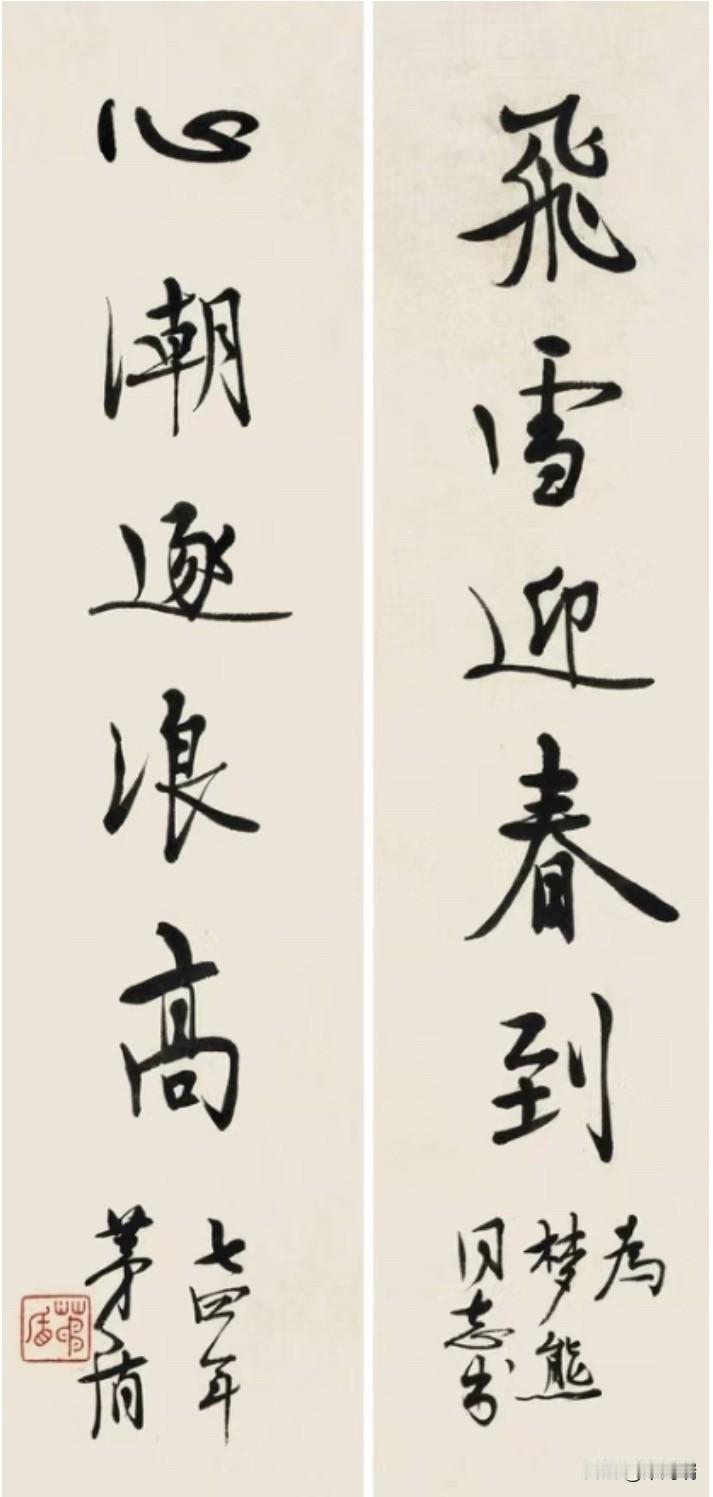 飛雪迎春到
为
梦熊
同志书
心潮逐浪高
七四年
茅盾
茅盾